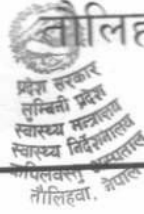 तौलिह
प्रदेश सरकार
लुम्बिनी प्रदेश
स्वास्थ्य मन्त्रालय
स्वास्थ्य निर्देशनालय
कपिलवस्तु अस्पताल
तौलिहवा, नेपाल